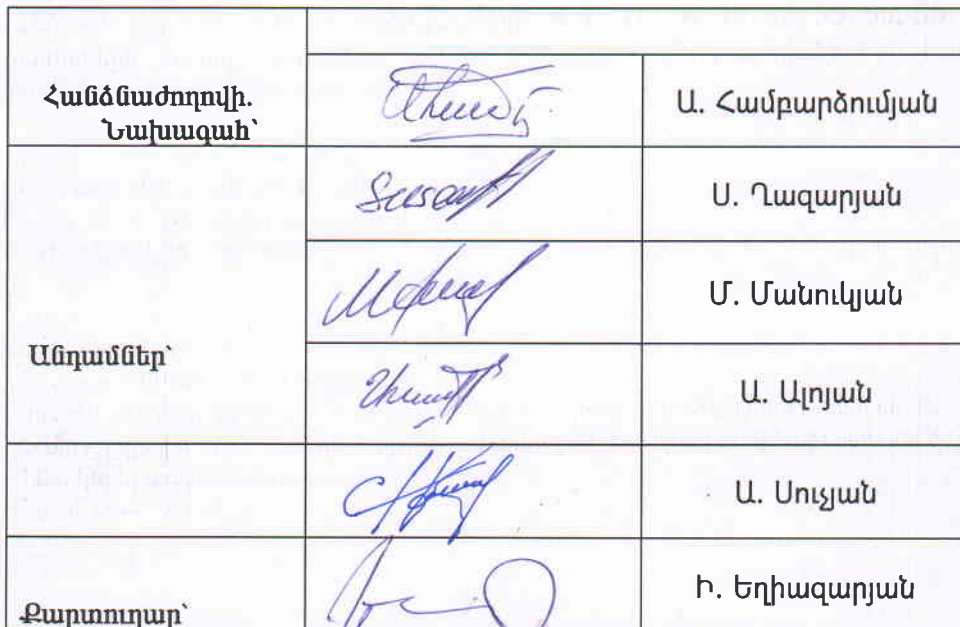 Հանձնաժողովի.
Նախագահ՝
Ա. Համբարձումյան
Ս. Ղազարյան
Մ. Մանուկյան
Անդամներ՝
Ա. Ալոյան
Ա. Սուչյան
Քարտուղար՝
Ի. Եղիազարյան